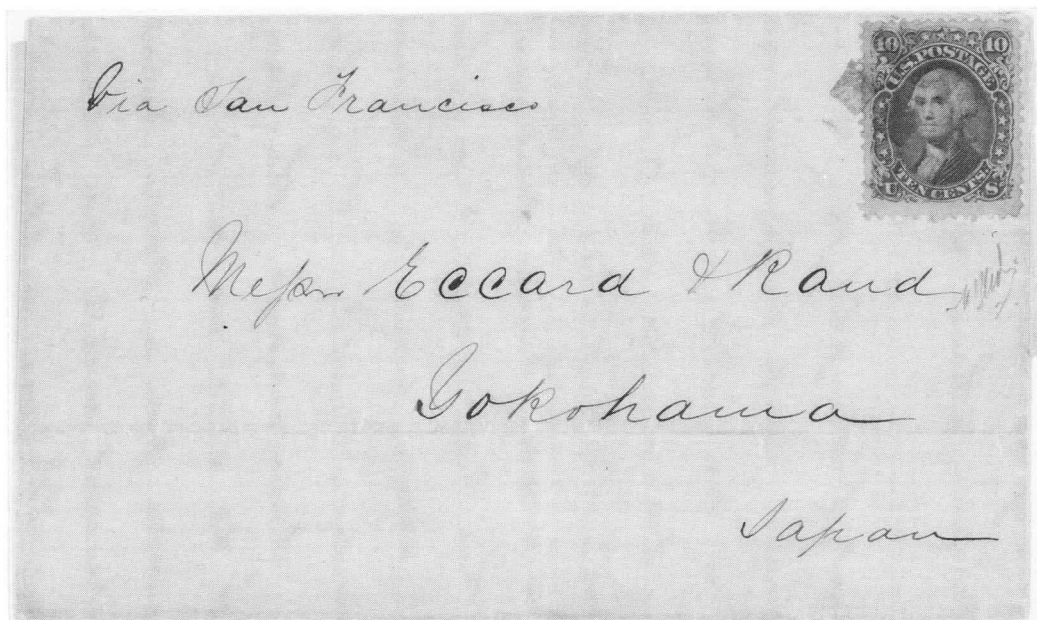 Via San Francisco
10 10
U.S. POSTAGE
TEN CENTS
U S
Messrs Eccard & Rand
Yokohama
Japan